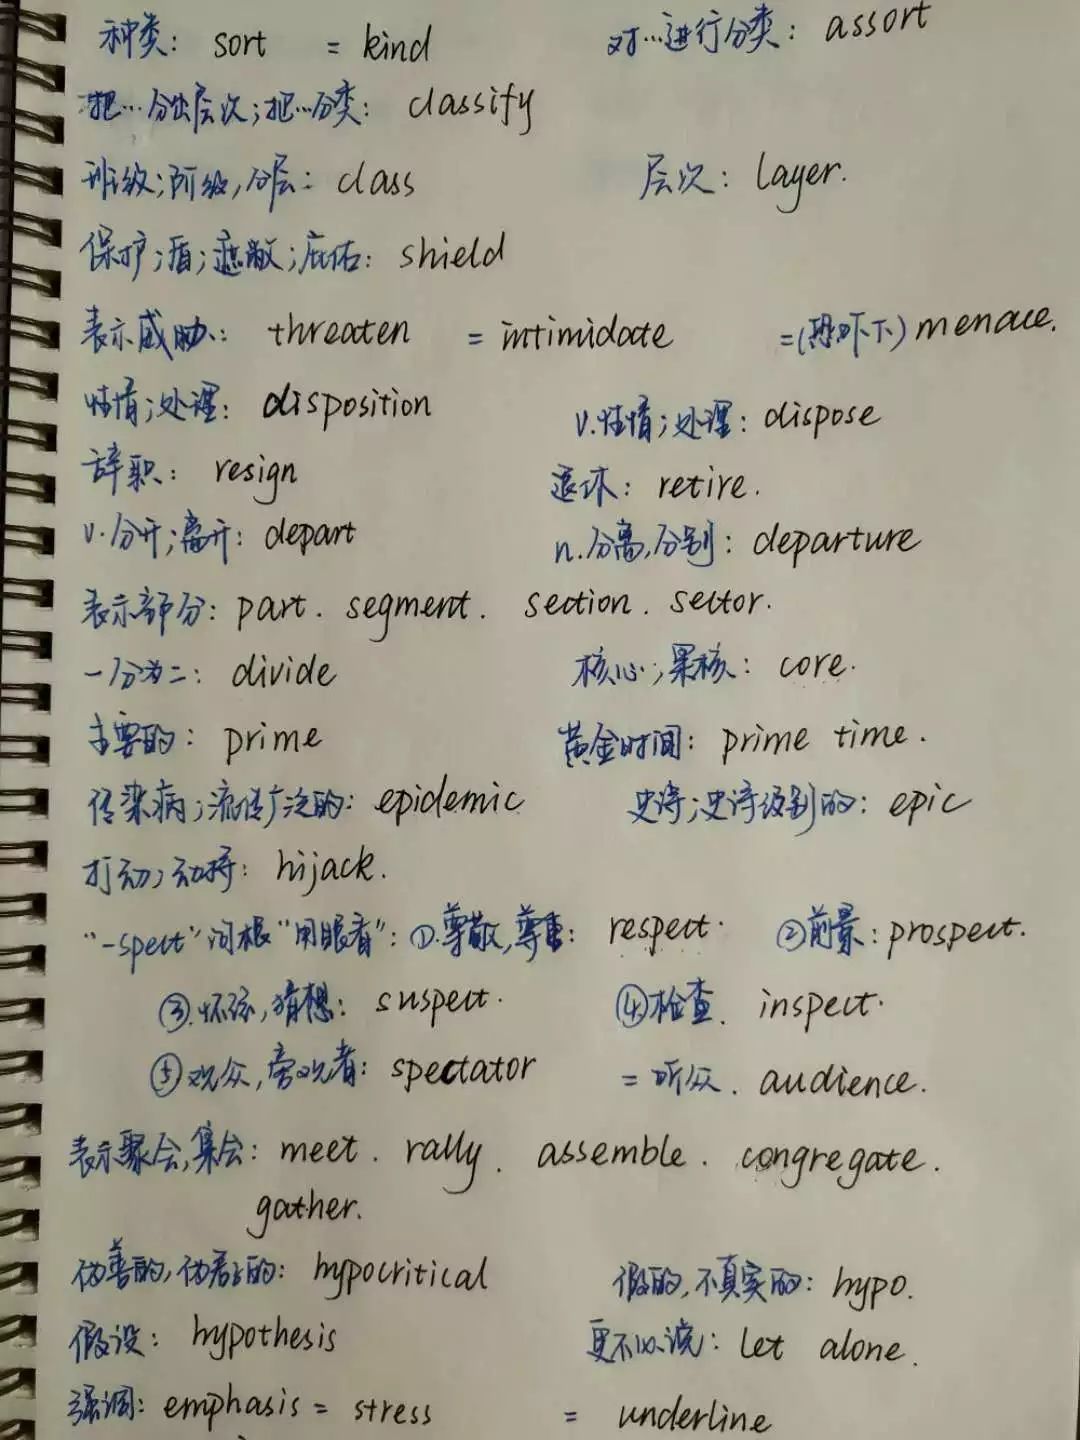 种类: sort = kind 对…进行分类: assort
把…分出层次;把…分类: classify
班级;阶级,分层: class 层次: layer.
保护;盾;遮蔽;庇佑: shield
表示威胁: threaten = intimidate =(恐吓下) menace.
性情;处理: disposition v.性情;处理: dispose
辞职: resign 退休: retire.
v.分开;离开: depart n.分离,分别: departure
表示部分: part. segment. section. sector.
一分为二: divide 核心;果核: core.
主要的: prime 黄金时间: prime time.
传染病;流传广泛的: epidemic 史诗;史诗级别的: epic
打劫;劫持: hijack.
"-spect"词根"用眼看": ①.尊敬,尊重: respect. ②前景: prospect.
③.怀疑,猜想: suspect. ④检查. inspect.
⑤观众,旁观者: spectator = 听众. audience.
表示聚会,集会: meet. rally. assemble. congregate.
gather.
伪善的,伪君子的: hypocritical 假的,不真实的: hypo.
假设: hypothesis 更不必说: let alone.
强调: emphasis = stress = underline